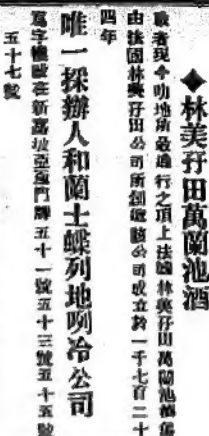 ◆林美孖田萬蘭池酒
啟者現今叻地所最通行之頂上法國林美孖田萬蘭池酒係
由法國林美孖田公司所創該公司成立於一千七百二十
四年
唯一採辦人和蘭士蝶列地咧冷公司
寫字樓設在新嘉坡亞門牌五十一號五十三號五十五號
五十七號